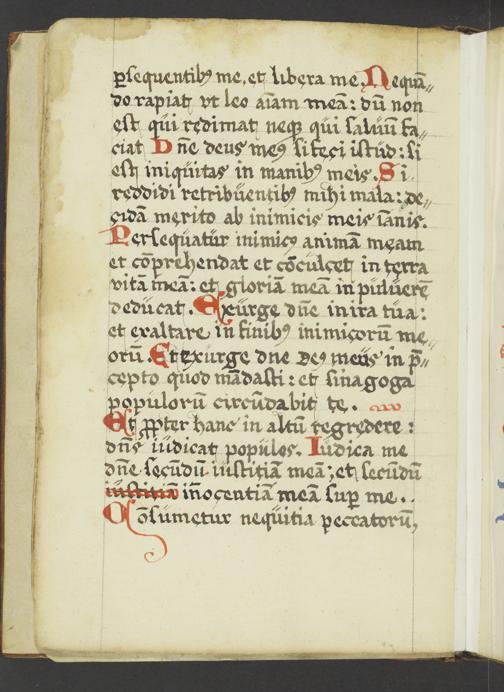 ꝑsequentibꝰ me, et libera me. Nequã„
do rapiat vt leo aĩam meã: dũ non
est qui redimat neqꝫ qui saluũ fa„
ciat Dñe deus meꝰ si feci istud: si
est iniquitas in manibꝰ meis. Si
reddidi retribuentibꝰ mihi mala: de„
cidã merito ab inimicis meis ianis.
Persequatur inimicꝰ animam meam
et cõprehendat et cõculcet in terra
vitã meã: et gloriã meã in puluerẽ
deducat. Exurge dñe in ira tua:
et exaltare in finibꝰ inimicorũ me„
orũ. Et exurge dne Deꝰ meus in p̃„
cepto quod mãdasti: et sinagoga
populorũ circũdabit te.
Et ꝓpter hanc in altũ regredere:
dñs iudicat populos. Iudica me
dñe secũdũ iustitiã meã; et secũdũ
iustitiã iñocentiã meã suꝑ me..
Cõsumetur nequitia peccatorũ,